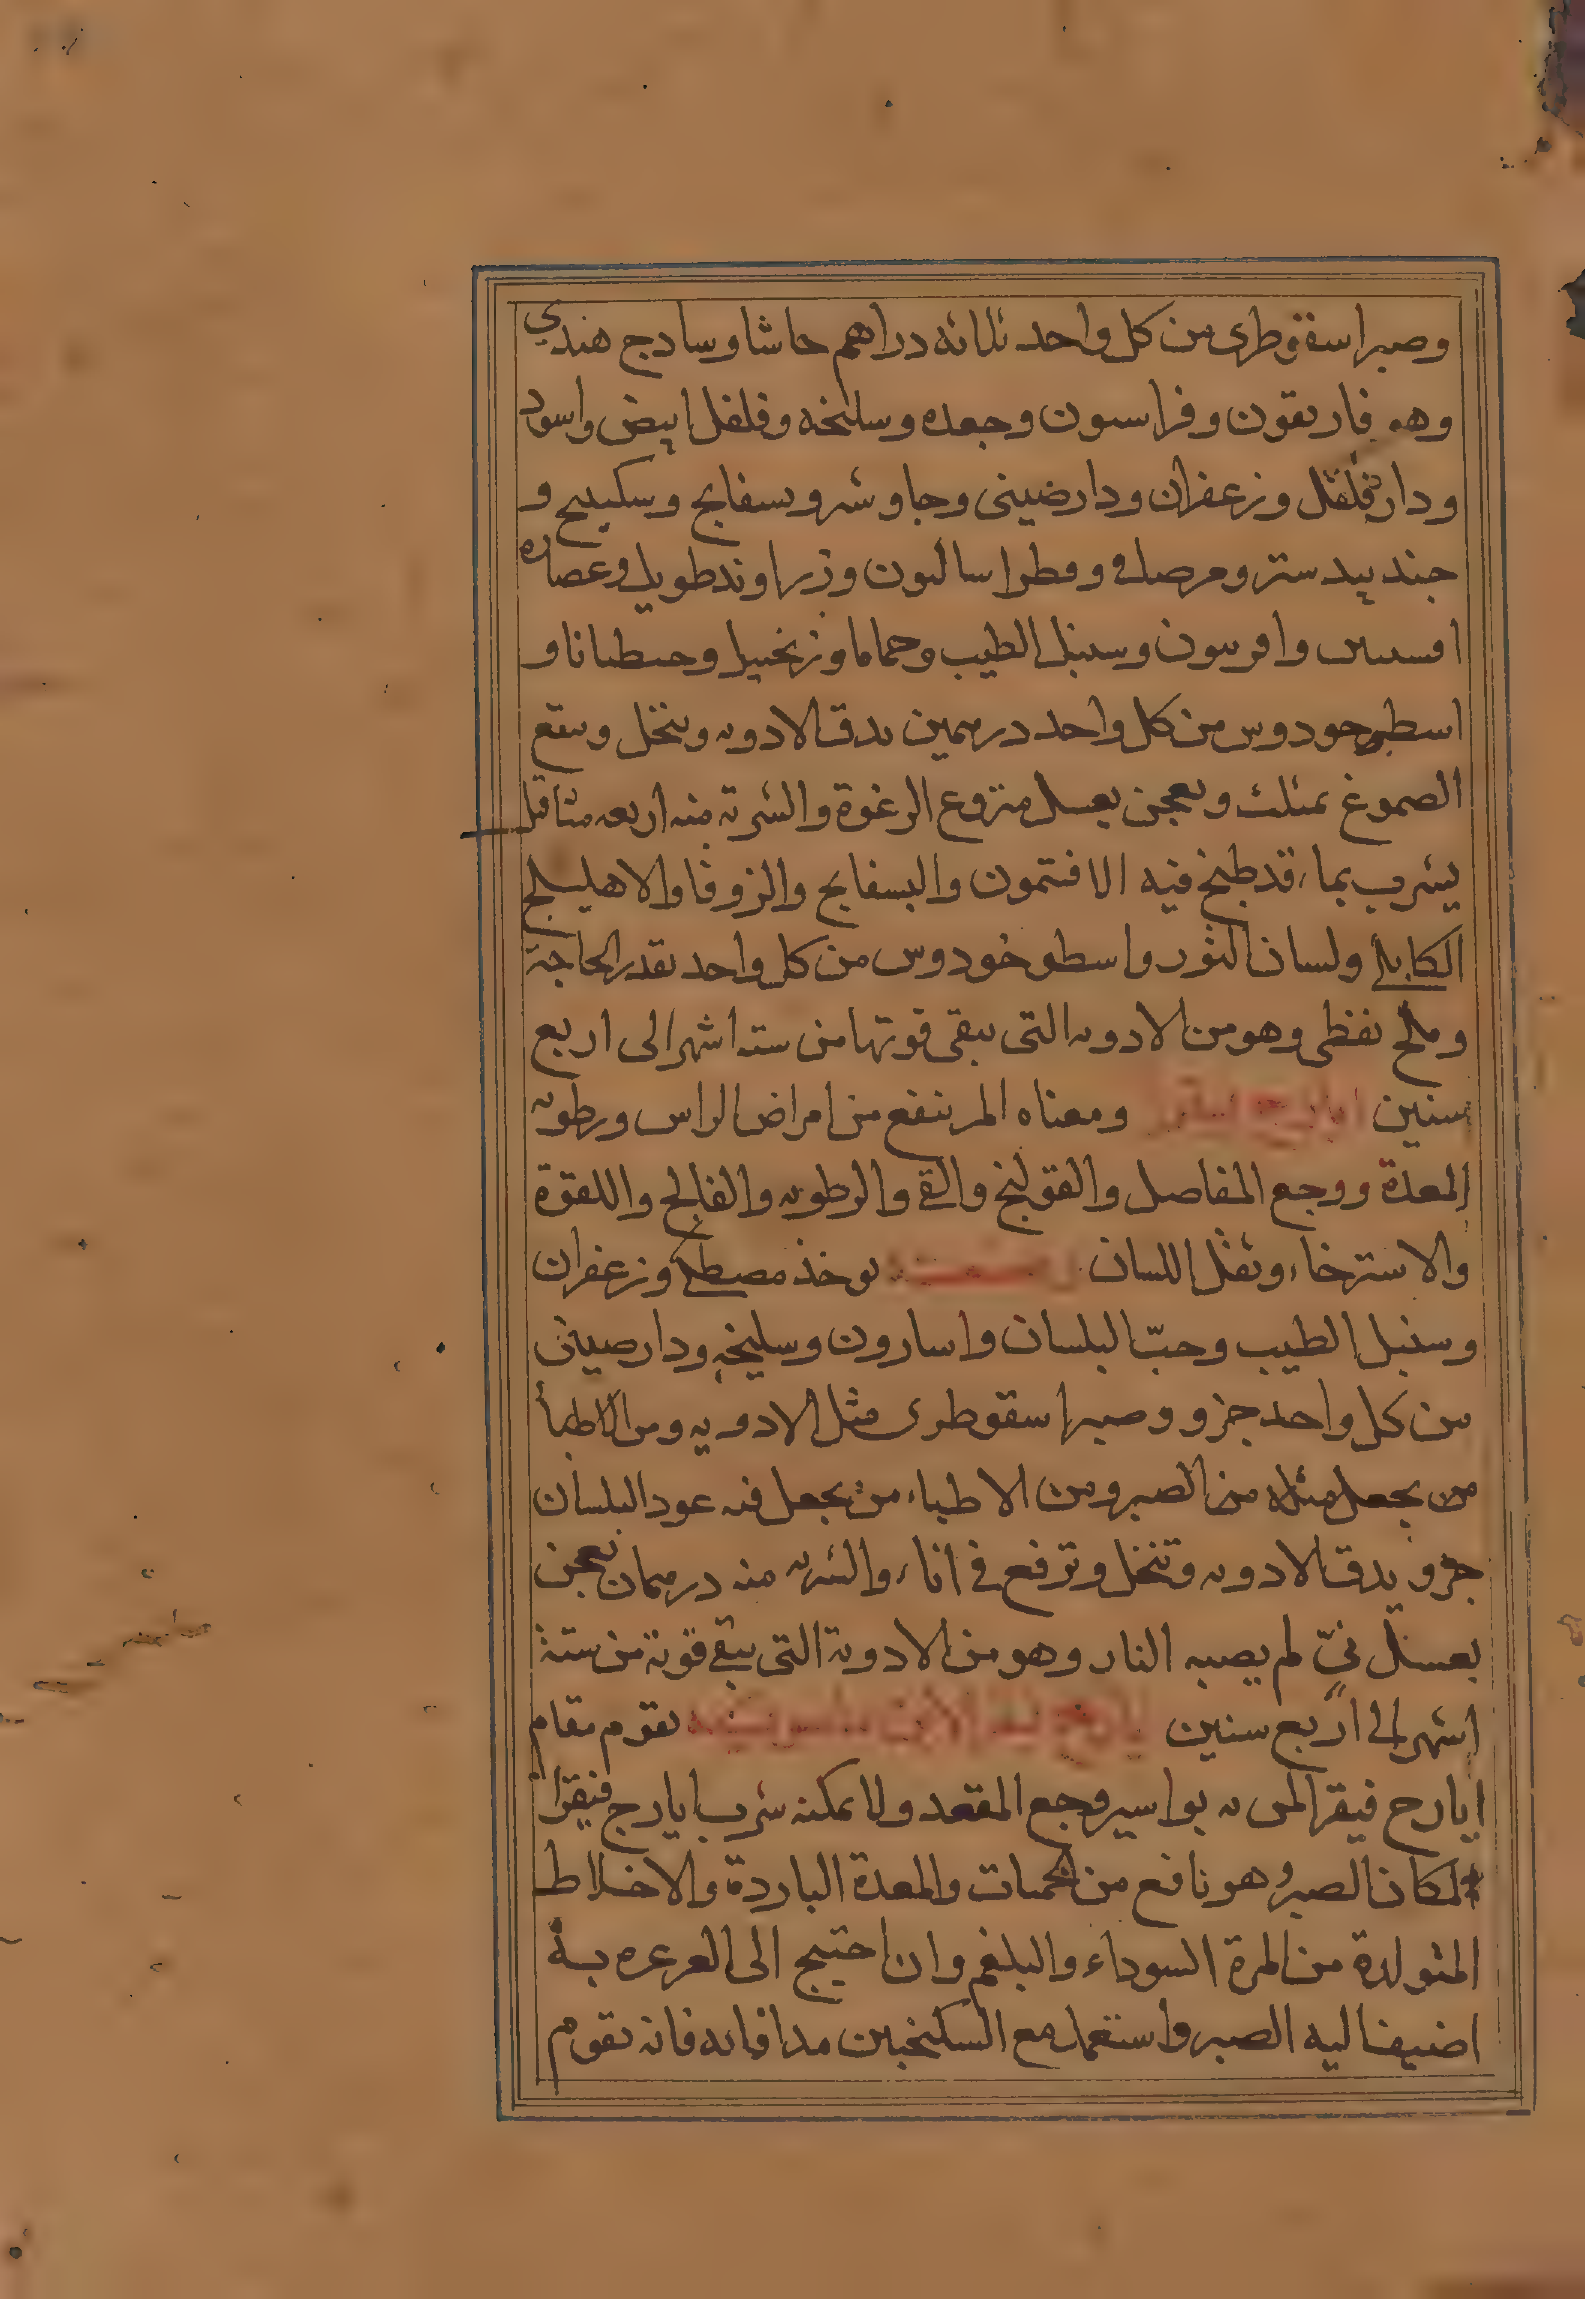 وصبر اسقوطرى من كل واحد ثلاثه دراهم حاشا وسادج هندي
وهو فاريقون وفراسيون وجعده وسليخه وفلفل ابيض واسود
ودار فلفل وزعفران ودارصينى وجاوشر وبسفايج وسكبينج و
جندبيدستر ومرصافى وفطراساليون وزراوند طويل وعصاره
افسنتين وافربيون وسنبل الطيب وحماما وزنجبيل وجنطيانا و
اسطوخودوس من كل واحد درهمين يدق الادويه وينخل وينقع
الصموغ بمثلث ويعجن بعسل منزوع الرغوة والشربة منه اربعه مثاقيل
يشرب بماء قد طبخ فيه الافتيمون والبسفايج والزوفا والاهليلج
الكابلى ولسان الثور واسطوخودوس من كل واحد بقدر الحاجة
وملح نفطى وهو من الادويه التى يبقى قوتها من سته اشهر الى اربع
سنين ايارج فيقرا ومعناه المر ينفع من امراض الراس ورطوبه
المعدة ووجع المفاصل والقولنج والقى والرطوبه والفالج واللقوة
والاسترخاء وثقل اللسان يوخذ مصطكى وزعفران
وسنبل الطيب وحبّ البلسان واسارون وسليخه ودارصينى
من كل واحد جزو وصبر اسقوطرى مثل الادويه ومن الاطباء
من يجعل مثله من الصبر ومن الاطباء من يجعل فيه عود البلسان
جزو يدق الادويه وتنخل وترفع فى اناء والشربه منه درهمان يعجن
بعسل نيّ لم يصبه النار وهو من الادوية التى يبقى قوته من ستة
اشهر الى اربع سنين يقوم مقام
ايارج فيقرا لمن به بواسير وجع المقعد ولا يمكنه شرب ايارج فيقرا
لمكان الصبر وهو نافع من الحميات والمعدة الباردة والاخلاط
المتولدة من المرة السوداء والبلغم وان احتيج الى الغرغره به
اضيف اليه الصبر واستعمل مع السكنجبين مدافا به فانه يقوم